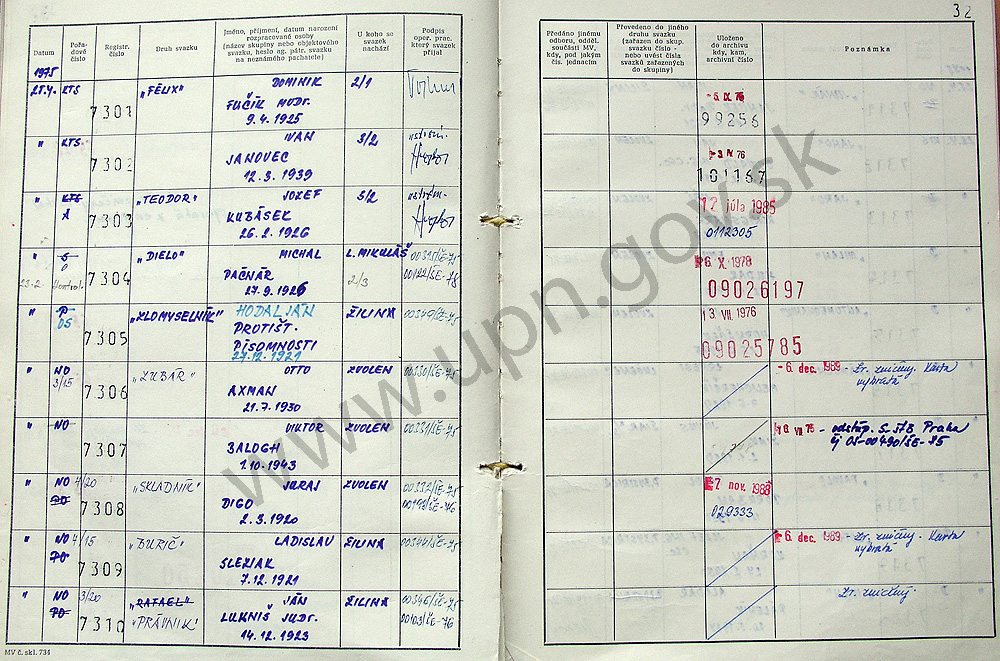 32
Datum
Pořadové číslo
Registr. číslo
Druh svazku
Jméno, příjmení, datum narození rozpracované osoby (název skupiny nebo objektového svazku, heslo ag. pátr. svazku na neznámého pachatele)
U koho se svazek nachází
Podpis oper. prac. který svazek přijal
Předáno jinému odboru, odděl. součásti MV, kdy, pod jakým čís. jednacím
Převedeno do jiného druhu svazku (zařazen do skup. svazku číslo - nebo uvést čísla svazků zařazených do skupiny)
Uloženo do archivu kdy, kam, archivní číslo
Poznámka
1975
25.4. KTS 7301 „FÉLIX" DOMINIK 2/1
FUČÍK MUDr.
9.4.1925
-5. IX. 76
99256
" KTS 7302 IVAN 3/2
JANOVEC
12.3.1939
3. IV. 76
101167
" KTS A 7303 „TEODOR" JOZEF 5/2
KUBÁSEK
26.2.1926
12. júla 1985
0112305
" 7304 „DIELO" MICHAL L. MIKULÁŠ 00325/ŠE-75
23.2. Kontrol. PAČNÁR 2/3 00122/ŠE-78
27.9.1926
6. X. 1978
09026197
" P 05 7305 „ZLOMYSELNÍK" HODAL JÁN ŽILINA 00349/ŠE-75
PROTIŠT.
PÍSOMNOSTI
27.12.1921
13. VII. 1976
09025785
" NO 3/15 7306 „ZUBÁR" OTTO ZVOLEN 00330/ŠE-75
AXMAN
21.7.1930
- 6. dec. 1989 - Zv. zničený. Karta
vybratá
" NO 7307 VIKTOR ZVOLEN 00331/ŠE-75
BALOGH
1.10.1943
6. VII 76 - odstúp. S-ŠTB Praha
čj OS-00490/ŠE-75
" NO 4/20 PO 7308 „SKLADNÍK" JURAJ ZVOLEN 00332/ŠE-75
DIGO 00198/ŠE-76
2.3.1920
7 nov. 1988
029333
" NO 4/15 PO 7309 „BURIČ" LADISLAV ŽILINA 00344/ŠE-75
SLEZIAK
7.12.1921
6. dec. 1989 - Zv. zničený. Karta
vybratá
" NO 3/20 PO 7310 „RAFAEL" JÁN ŽILINA 00346/ŠE-75
„PRÁVNIK" LUKNIŠ JUDr. 00103/ŠE-76
14.12.1923
Zv. zničený.
MV č. skl. 734
www.upn.gov.sk